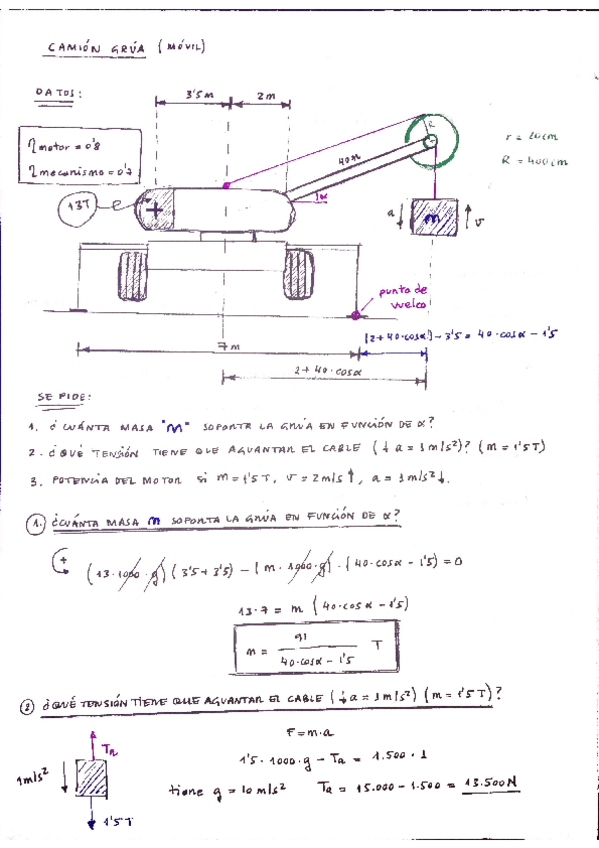 CAMIÓN GRÚA (MÓVIL)
DATOS:
3'5m
2m
R
r = 20cm
R = 400cm
ηmotor = 0'8
ηmecanismo = 0'7
40m
13T
α
a
m
v
punto de
vuelco
(2+40·cosα) - 3'5 = 40·cosα - 1'5
7m
2+40·cosα
SE PIDE:
1. ¿CUÁNTA MASA "m" SOPORTA LA GRÚA EN FUNCIÓN DE α?
2. ¿QUÉ TENSIÓN TIENE QUE AGUANTAR EL CABLE (↓ a = 1m/s²)? (m = 1'5T)
3. POTENCIA DEL MOTOR SI m = 1'5T, v = 2m/s↑, a = 1m/s²↓.
1. ¿CUÁNTA MASA m SOPORTA LA GRÚA EN FUNCIÓN DE α?
+ (13·1000·g)(3'5+3'5) - (m·1000·g)·(40·cosα - 1'5) = 0
13·7 = m (40·cosα - 1'5)
m = 91 / 40·cosα - 1'5 T
2 ¿QUÉ TENSIÓN TIENE QUE AGUANTAR EL CABLE (↓a = 1m/s²) (m = 1'5T)?
F = m·a
1m/s²
1'5·1000·g - Ta = 1.500·1
tiene g = 10m/s² Ta = 15.000 - 1.500 = 13.500N
1'5T